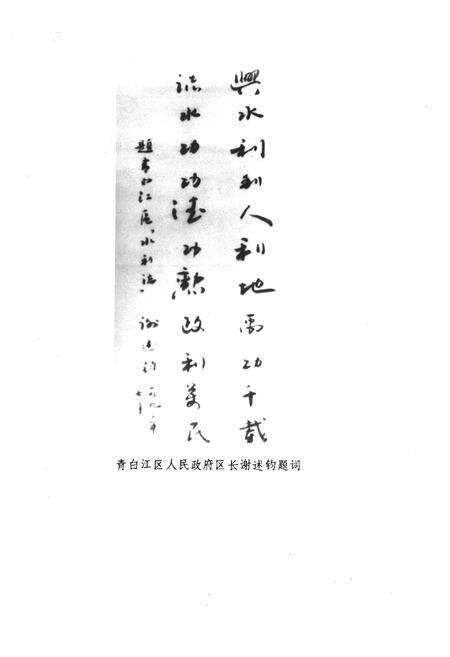 興水利利人利地禹功千载
誌水功功德功勲政利万民
题青白江区"水利誌"
谢述钧 一九九一年
七月
青白江区人民政府区长谢述钧题词